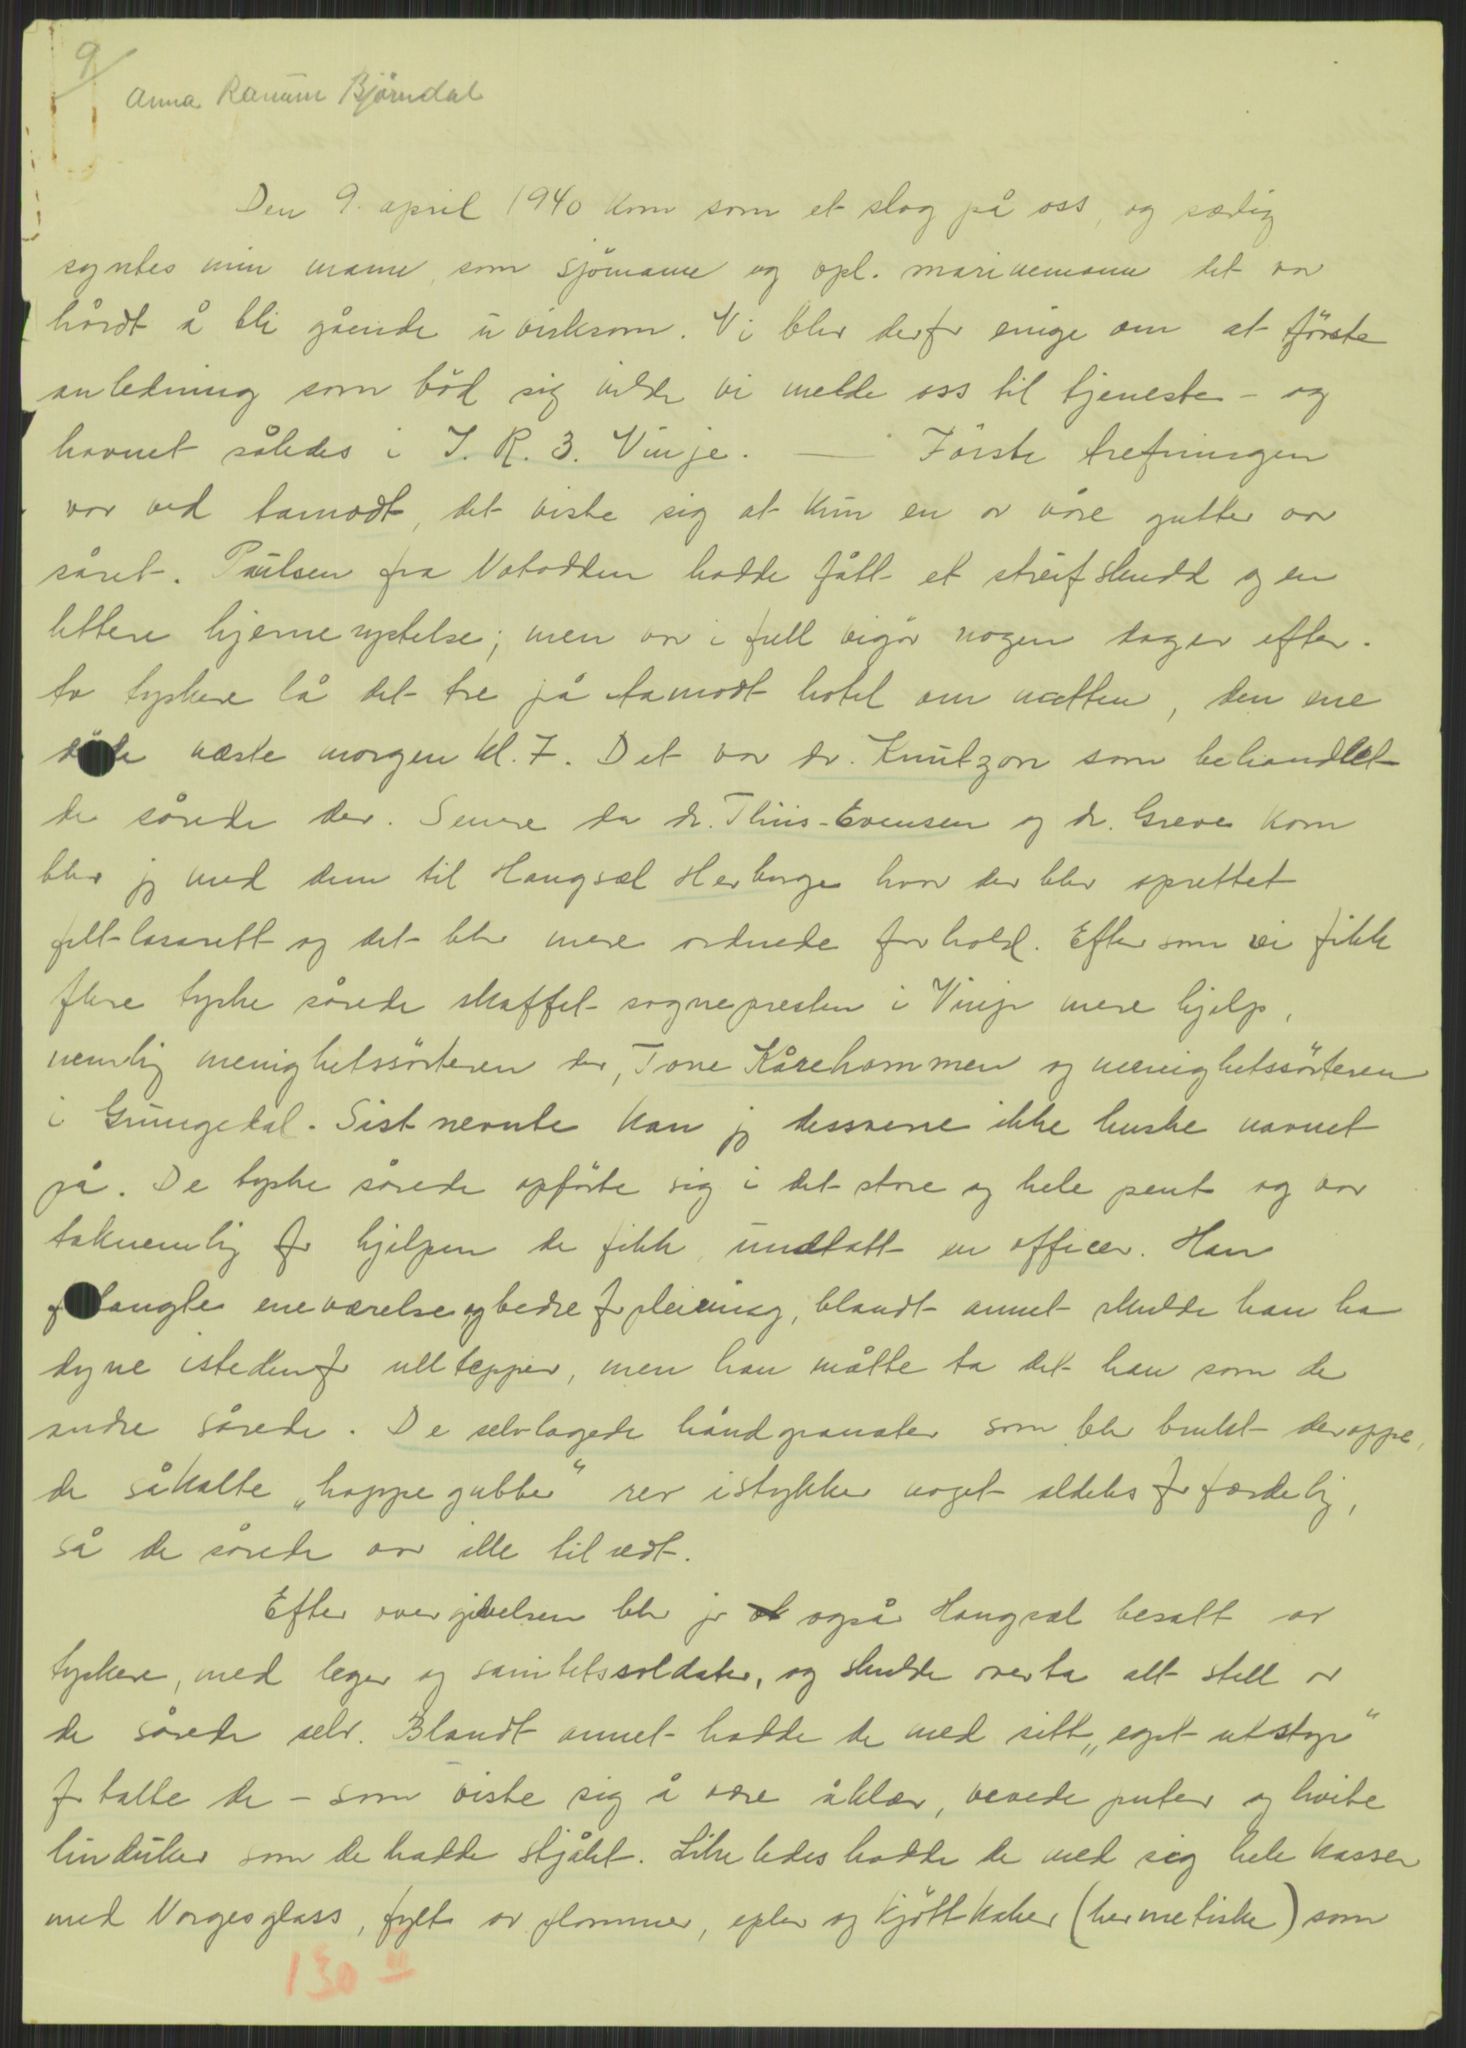 9/
Anna Ranum Bjørndal
Den 9. april 1940 kom som et slag på oss, og særlig
syntes min mann, som sjömann og opl. marinemann det var
hårdt å bli gående uvirksom. Vi blev derfor enige om at förste
anledning som böd sig vilde vi melde oss til tjeneste - og
havnet således i I. R. 3. Vinje. — Förste trefningen
var ved Åamodt, det viste sig at kun en av våre gutter var
såret. Paulsen fra Notodden hadde fått et streifskudd og en
lettere hjernerystelse; men var i full vigör nogen dager efter.
Av tyskere lå det tre på Åamodt hotel om natten, den ene
döde næste morgen kl. 7. Det var dr. Knutzon som behandlet
de sårede der. Senere da dr. Thiis-Evensen og dr. Greve kom
blev jeg med dem til Haugsæl Herberge hvor der blev oprettet
feltlasarett og det blev mere ordnede forhold. Eftersom vi fikk
flere tyske sårede skaffet sognepresten i Vinje mere hjelp,
nemlig menighetssösteren der, Tone Kårehommen og menighetssösteren
i Grungedal. Sistnevnte kan jeg dessverre ikke huske navnet
på. De tyske sårede opförte sig i det store og hele pent og var
taknemlig for hjelpen de fikk, undtatt en officer. Han
forlangte eneværelse og bedre forpleining, blandt annet skulde han ha
dyne istedenfor ulltepper, men han måtte ta det han som de
andre sårede. De selvlagede håndgranater som blev brukt deroppe,
de såkalte „hoppegubber“ rev istykker noget aldeles forfærdelig,
så de sårede var ille tilredt.
Efter overgivelsen blev jo også Haugsæl besatt av
tyskere, med leger og sanitetssoldater, og skulde overta alt stell av
de sårede selv. Blandt annet hadde de med sitt „eget utstyr“
fortalte de - som viste sig å være åklær, vevede puter og hvite
linduker som de hadde stjålet. Likeledes hadde de med sig hele kasser
med Norgesglass, fylt av plommer, epler og kjöttkaker (hermetiske) som
130